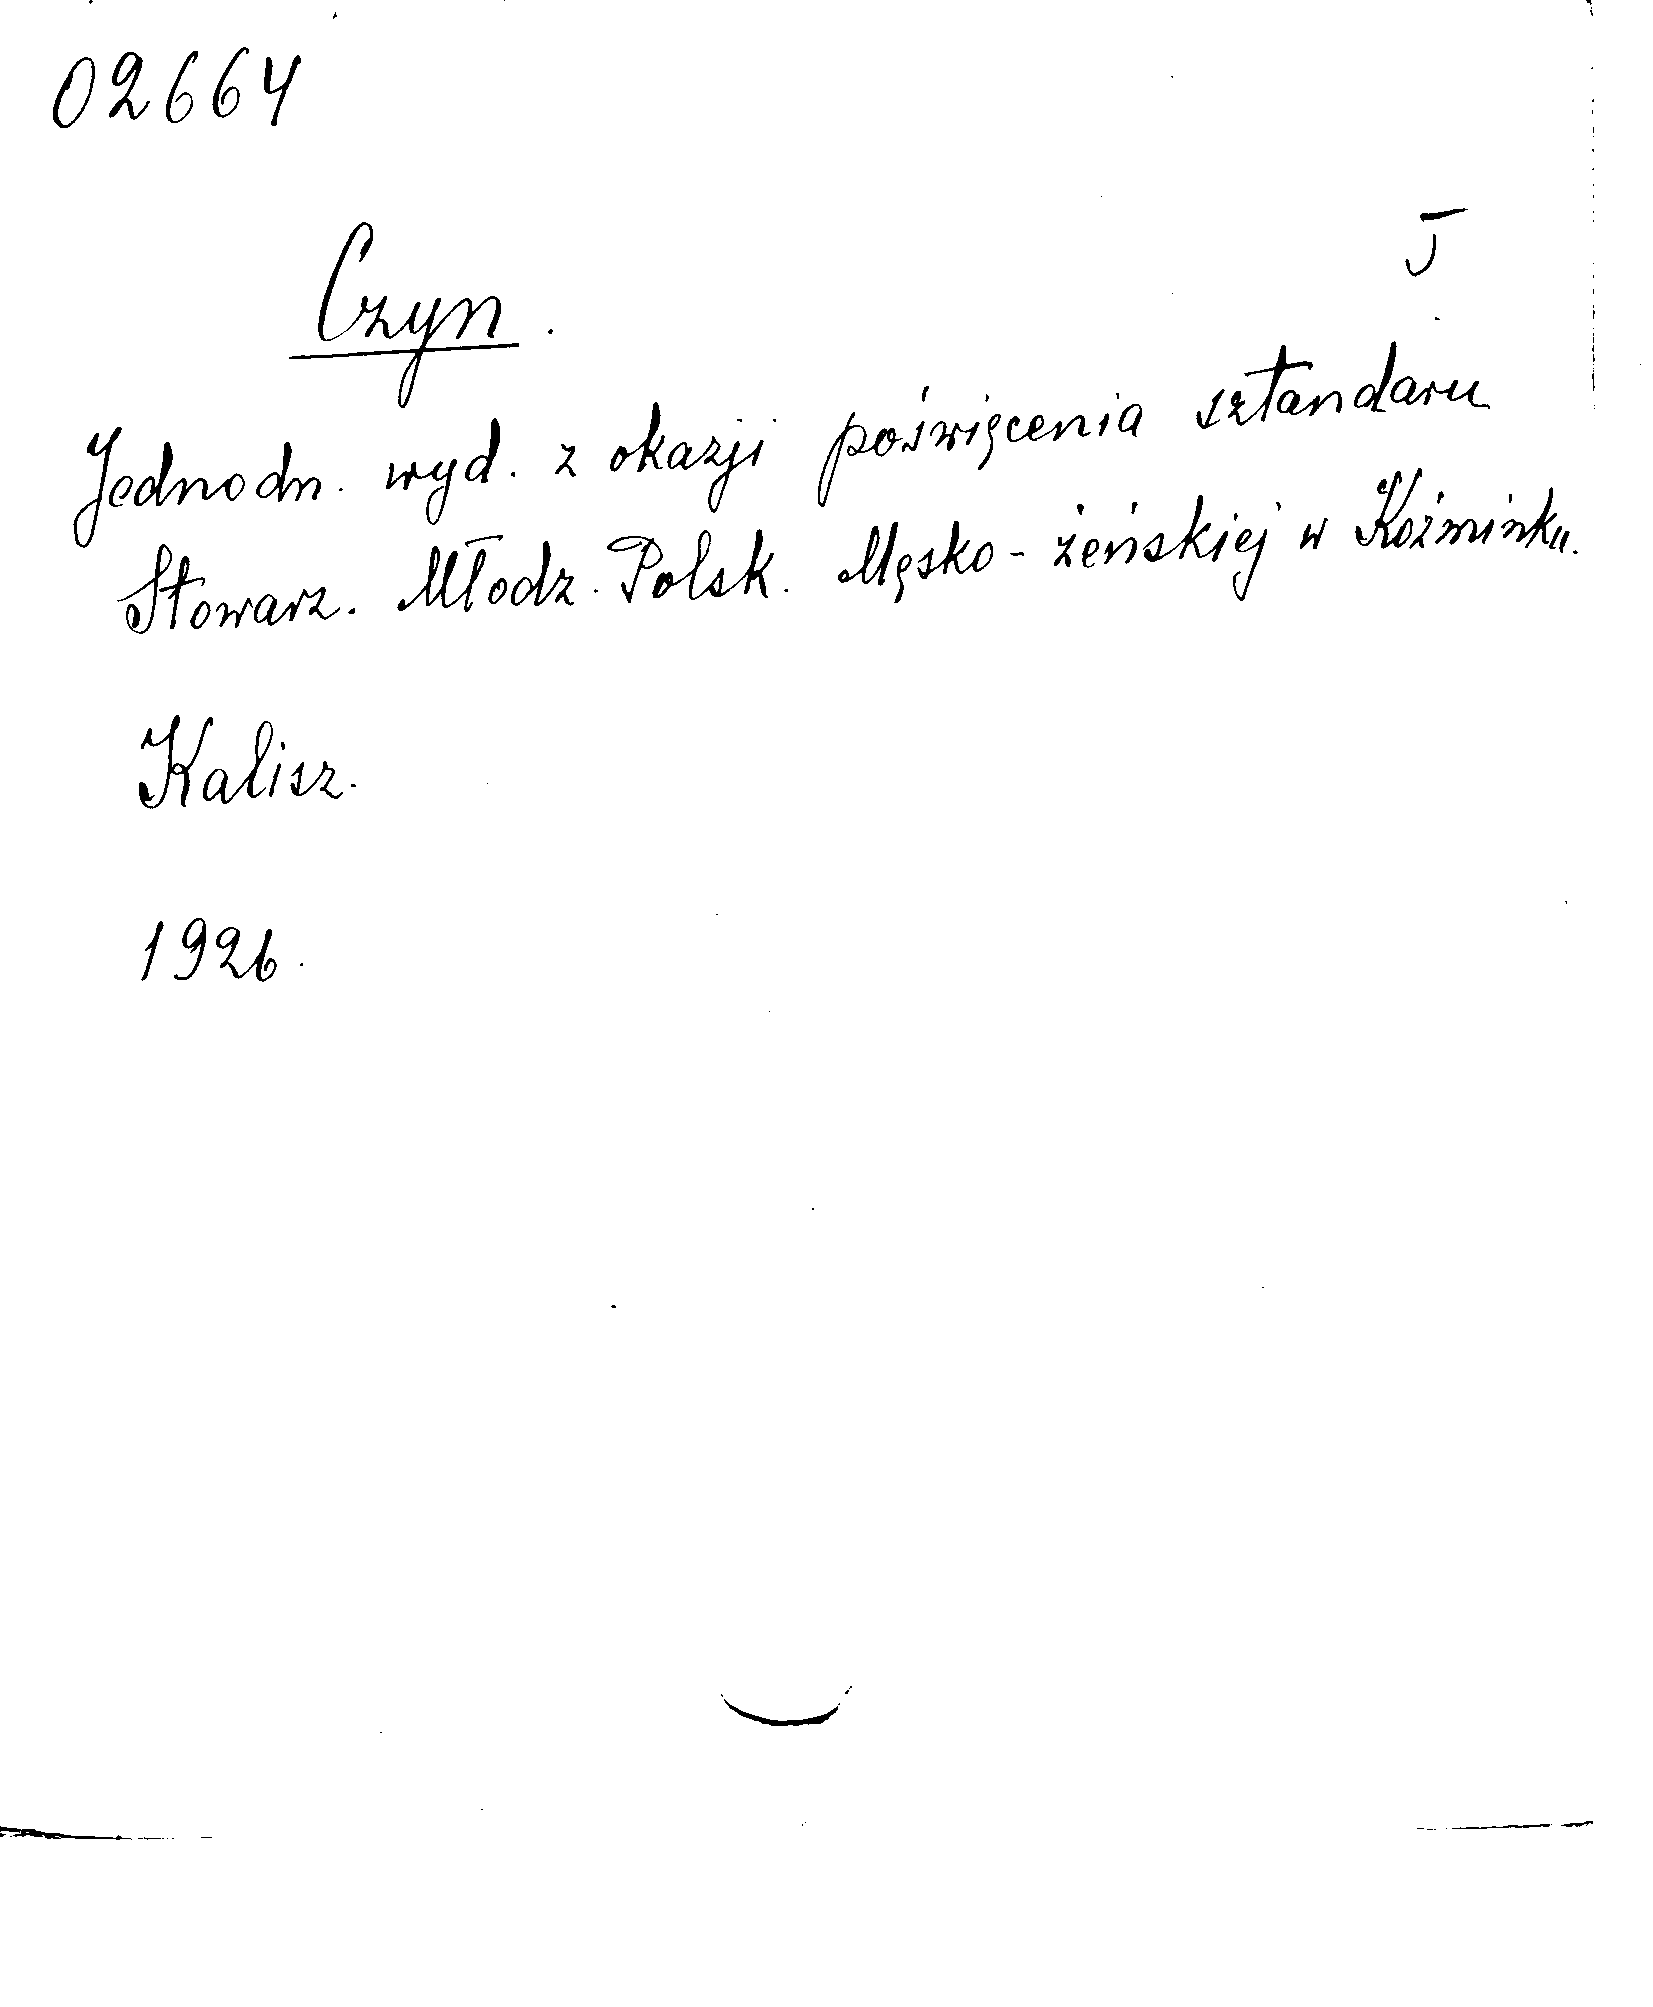 02664
J
Czyn.
Jednodn. wyd. z okazji poświęcenia sztandaru
Stowarz. Młodz. Polsk. Męsko-żeńskiej w Koźminku.
Kalisz.
1926.